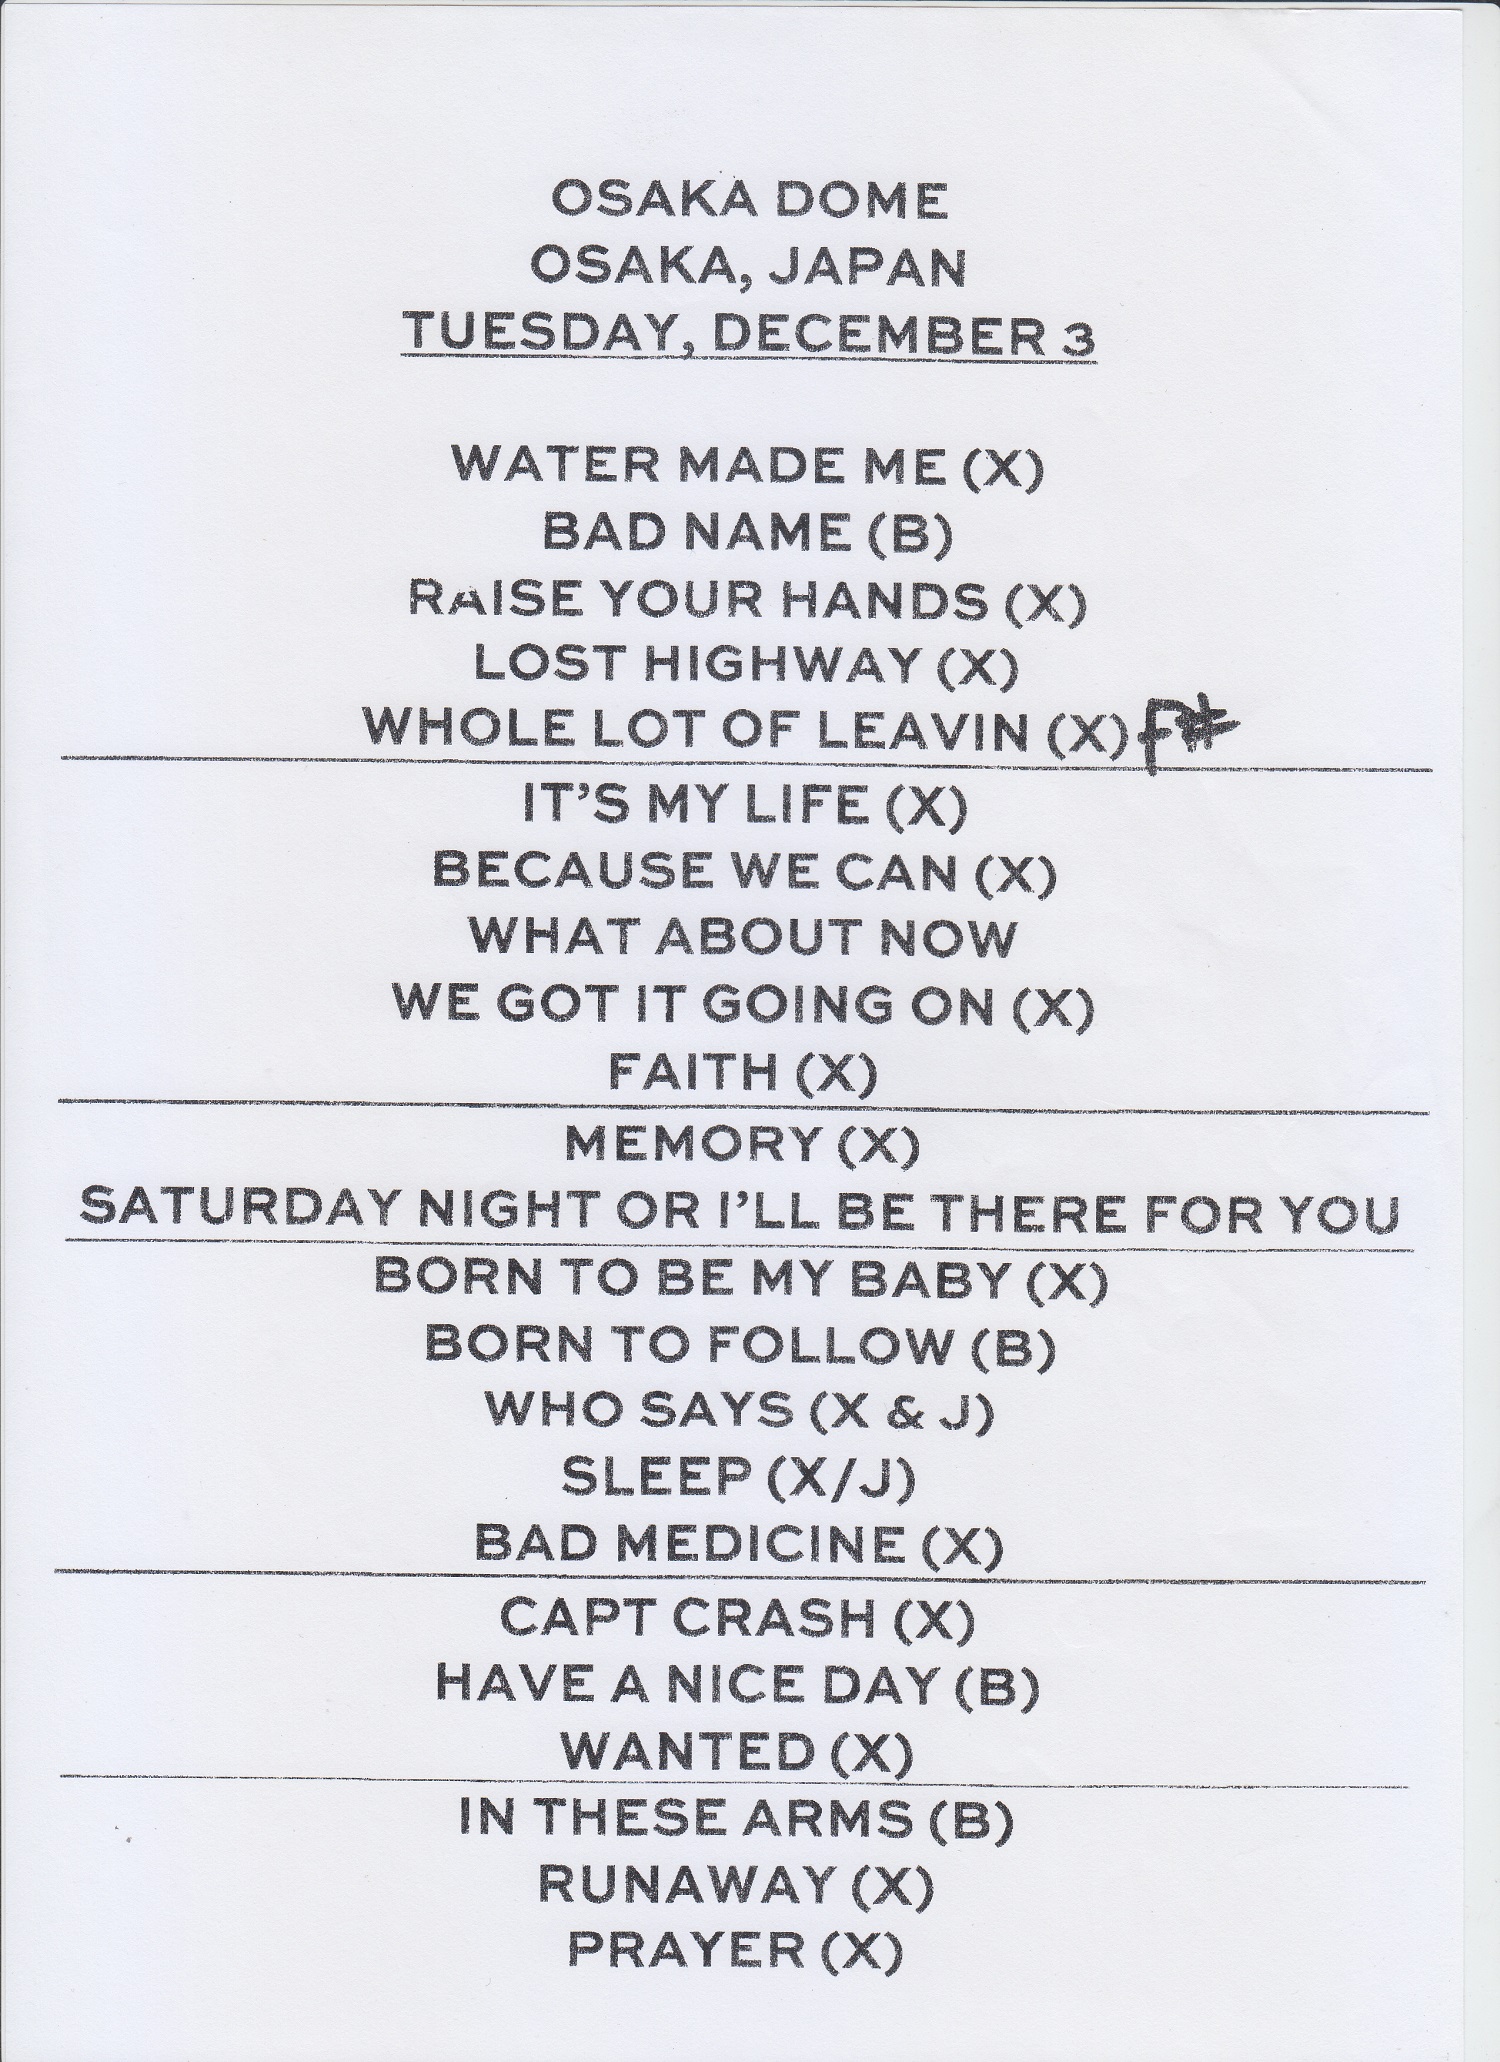 OSAKA DOME
OSAKA, JAPAN
TUESDAY, DECEMBER 3
WATER MADE ME (X)
BAD NAME (B)
RAISE YOUR HANDS (X)
LOST HIGHWAY (X)
WHOLE LOT OF LEAVIN (X) F#
IT'S MY LIFE (X)
BECAUSE WE CAN (X)
WHAT ABOUT NOW
WE GOT IT GOING ON (X)
FAITH (X)
MEMORY (X)
SATURDAY NIGHT OR I'LL BE THERE FOR YOU
BORN TO BE MY BABY (X)
BORN TO FOLLOW (B)
WHO SAYS (X & J)
SLEEP (X/J)
BAD MEDICINE (X)
CAPT CRASH (X)
HAVE A NICE DAY (B)
WANTED (X)
IN THESE ARMS (B)
RUNAWAY (X)
PRAYER (X)